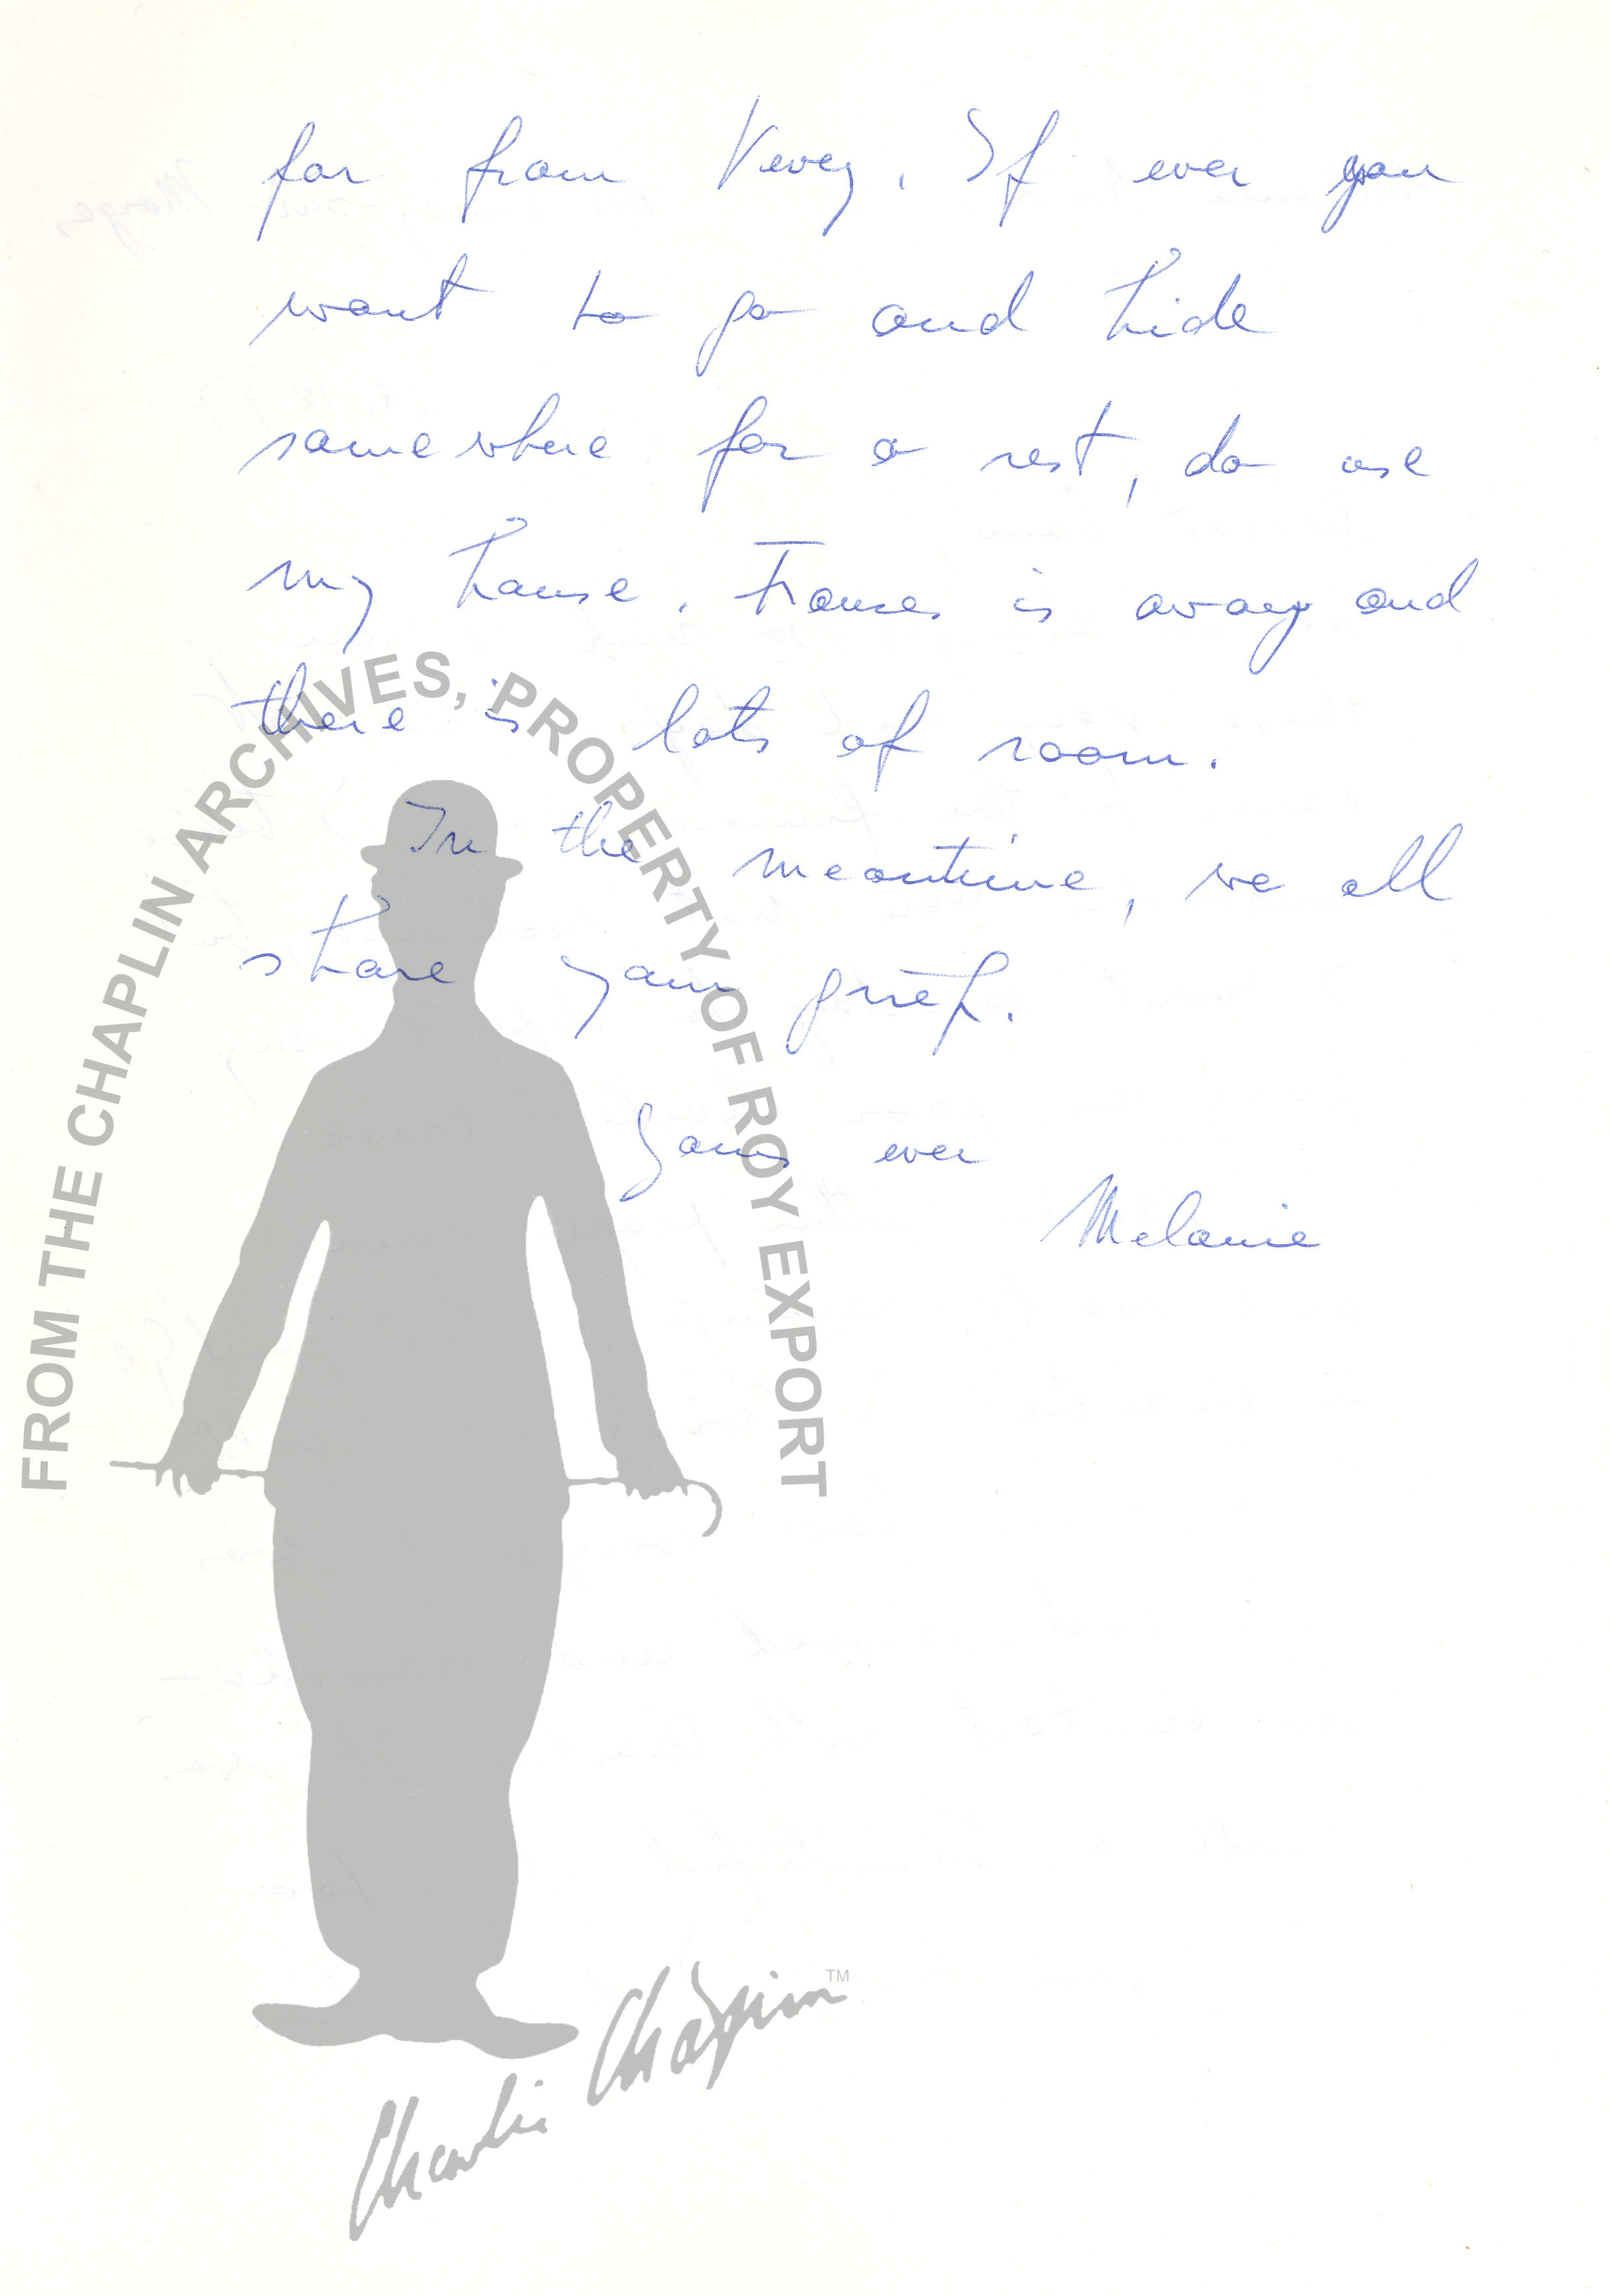 far from Vevey. If ever you
want to go and hide
somewhere for a rest, do use
my house. Frances is away and
there is lots of room.
In the meantime, we all
share your grief.
Yours ever
Melanie
FROM THE CHAPLIN ARCHIVES, PROPERTY OF ROY EXPORT
Charlie Chaplin™